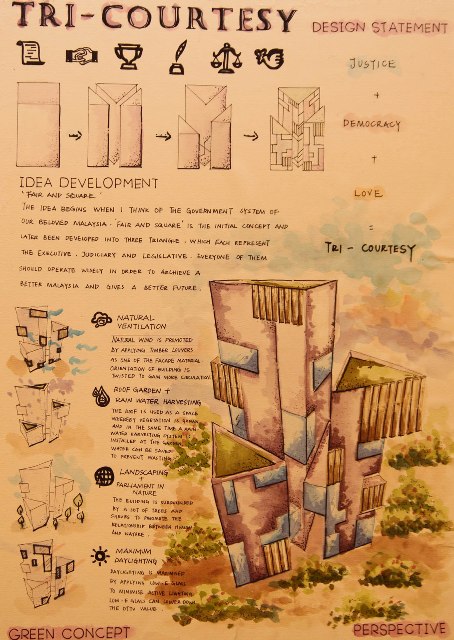 TRI-COURTESY
DESIGN STATEMENT
JUSTICE
+
DEMOCRACY
+
LOVE
=
TRI - COURTESY
IDEA DEVELOPMENT
'FAIR AND SQUARE'
THE IDEA BEGINS WHEN I THINK OF THE GOVERNMENT SYSTEM OF
OUR BELOVED MALAYSIA. 'FAIR AND SQUARE' IS THE INITIAL CONCEPT AND
LATER BEEN DEVELOPED INTO THREE TRIANGLE. WHICH EACH REPRESENT
THE EXECUTIVE. JUDICIARY AND LEGISLATIVE. EVERYONE OF THEM
SHOULD OPERATE WISELY IN ORDER TO ARCHIEVE A
BETTER MALAYSIA AND GIVES A BETTER FUTURE.
NATURAL
VENTILATION
NATURAL WIND IS PROMOTED
BY APPLYING TIMBER LOUVERS
AS ONE OF THE FACADE MATERIAL
ORIENTATION OF BUILDING IS
TWISTED TO GAIN MORE CIRCULATION
ROOF GARDEN +
RAIN WATER HARVESTING
THE ROOF IS USED AS A SPACE
WHEREBY VEGETATION IS
AND IN THE SAME TIME A RAIN
WATER HARVESTING SYSTEM IS
INSTALLED AT THE GARDEN
WATER CAN BE SAVED
TO PREVENT WASTING
LANDSCAPING
+
PARLIAMENT IN
NATURE
THE BUILDING IS SURROUNDED
BY A LOT OF TREES AND
SHRUBS TO PROMOTE THE
RELATIONSHIP BETWEEN HUMAN
AND NATURE.
MAXIMUM
DAYLIGHTING
DAYLIGHTING IS MAXIMISED
BY APPLYING LOW-E GLASS
TO MINIMISE ACTIVE LIGHTING
LOW-E GLASS CAN LOWER DOWN
THE OTTV VALUE
GREEN CONCEPT
PERSPECTIVE